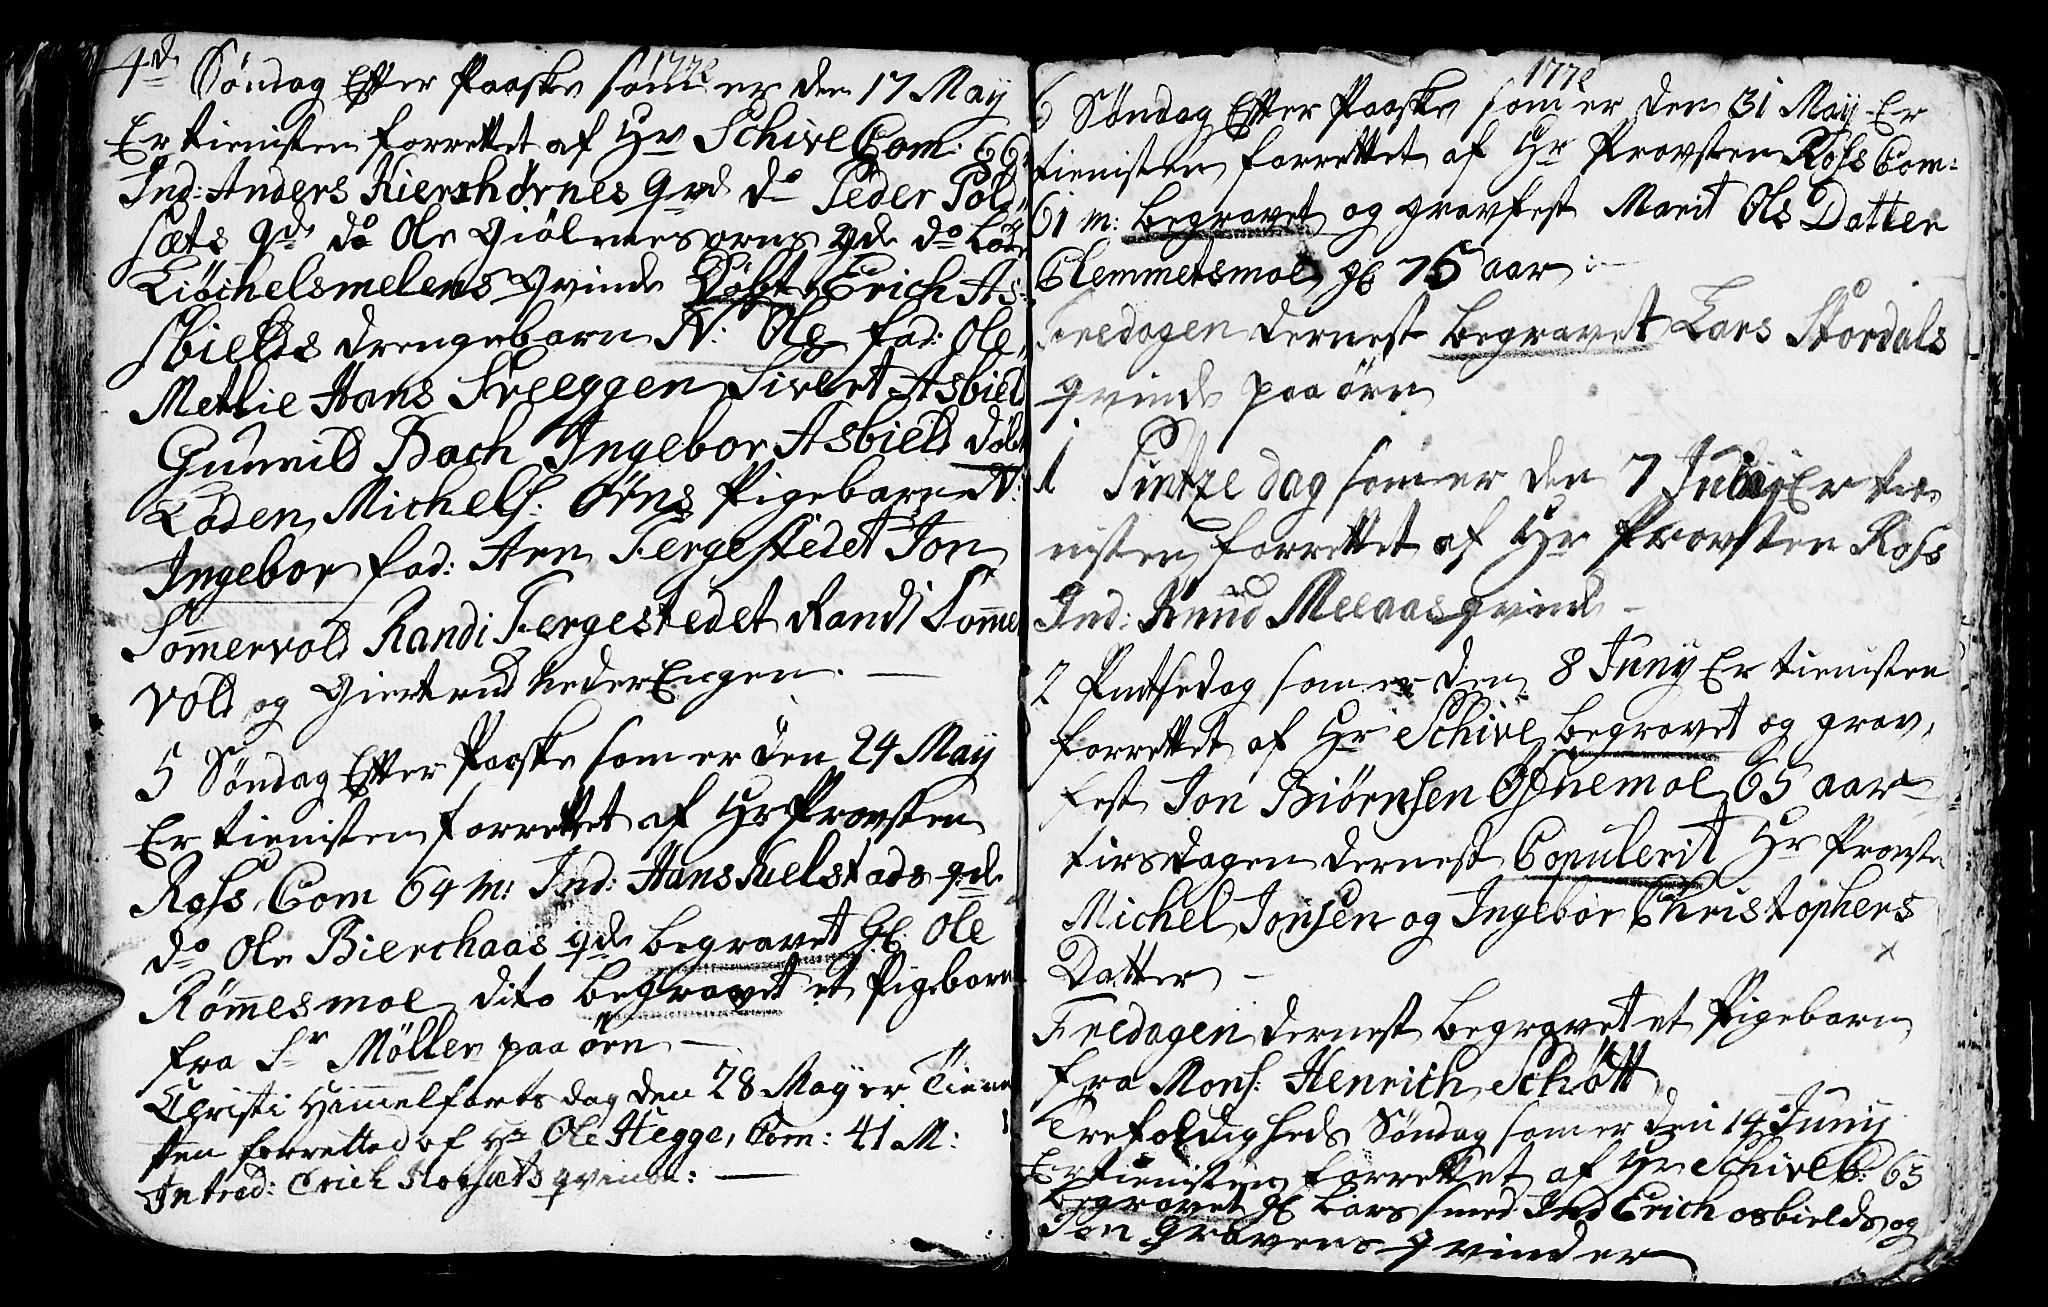 1772
4de Søndag Efter Paaske som er den 17 May
Er tienisten forrettet af Hr Schive Com: 66
Ind: Anders Kierehørnes qvd do Peder Pol-
sæts qde do Ole Giölmesørns qde do
Liöchelsmelens qvinde Døbt Erich As:
sbields drengebarn N: Ole fad: Ole
Metlie Hans Skreeggen Sivert Asbield
Gunnild Bach Ingebor Asbield Døbt
Laden Michels: Ørns Pigebarn N:
Ingebor fad: Arn Fergestedet Jon
Som̄ervold Randi Fergestedet Randi Som̄er
vold og Giertrud Neder Engen. —
5 Søndag Efter Paaske som er den 24 May
Er tienisten forrettet af Hr Provsten
Ross Com 64 M: Ind: Hans Kielstads qde
do Ole Bierchaas qde begravet gl Ole
Röm̄esmoe dito begravet et Pigebarn
fra Sr Möller paa örn —
Christi Himmelfarts dag den 28 May er Tienes
ten forretted af Hr Ole Hegge, Com: 41 M:
Introd: Erich Norsæts qvinde: —
1772
6 Søndag Efter Paaske som er den 31 May Er
tienisten forrettet af Hr Provsten Ross Com:
61 m: begravet og gravfest Marit Ols Datter
Clemmetsmoe gl 76 aar
Fredagen dernest begravet Lars Stordals
qvinde paa örn
1 Pintze dag som er den 7 Juny Er tie
nisten forrettet af Hr Provsten Ross
Ind: Knud Meeaas qvinde —
2 Pintsedag som er den 8 Juny Er tienisten
forrettet af Hr Schive begravet og grav,
fest Jon Biörnsen Ofnemoe 65 aar
tirsdagen dernest Copulerit Hr Provste
Michel Jonsen og Ingebor Christophers
Datter —
Fredagen dernest begravet et Pigebarn
fra Mons: Henrich Schött
Trefoldigheds Søndag som er den 14 Juny
Er tienisten forrettet af Hr Schive C: 63
begravet gl Lars smed Ind Erich asbields og
Jon Gravens qvinder